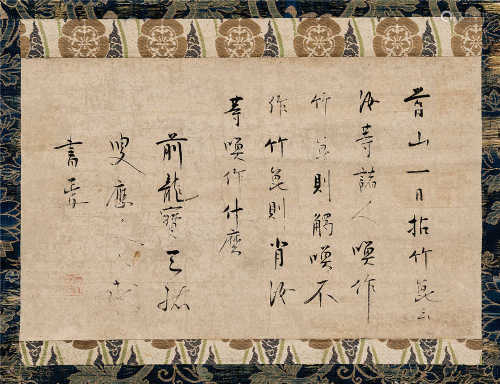 首山一日拈竹篦云
汝等諸人喚作
竹篦則觸喚不
作竹篦則背汝
等喚作什麼
前龍寶天祐
叟應
書